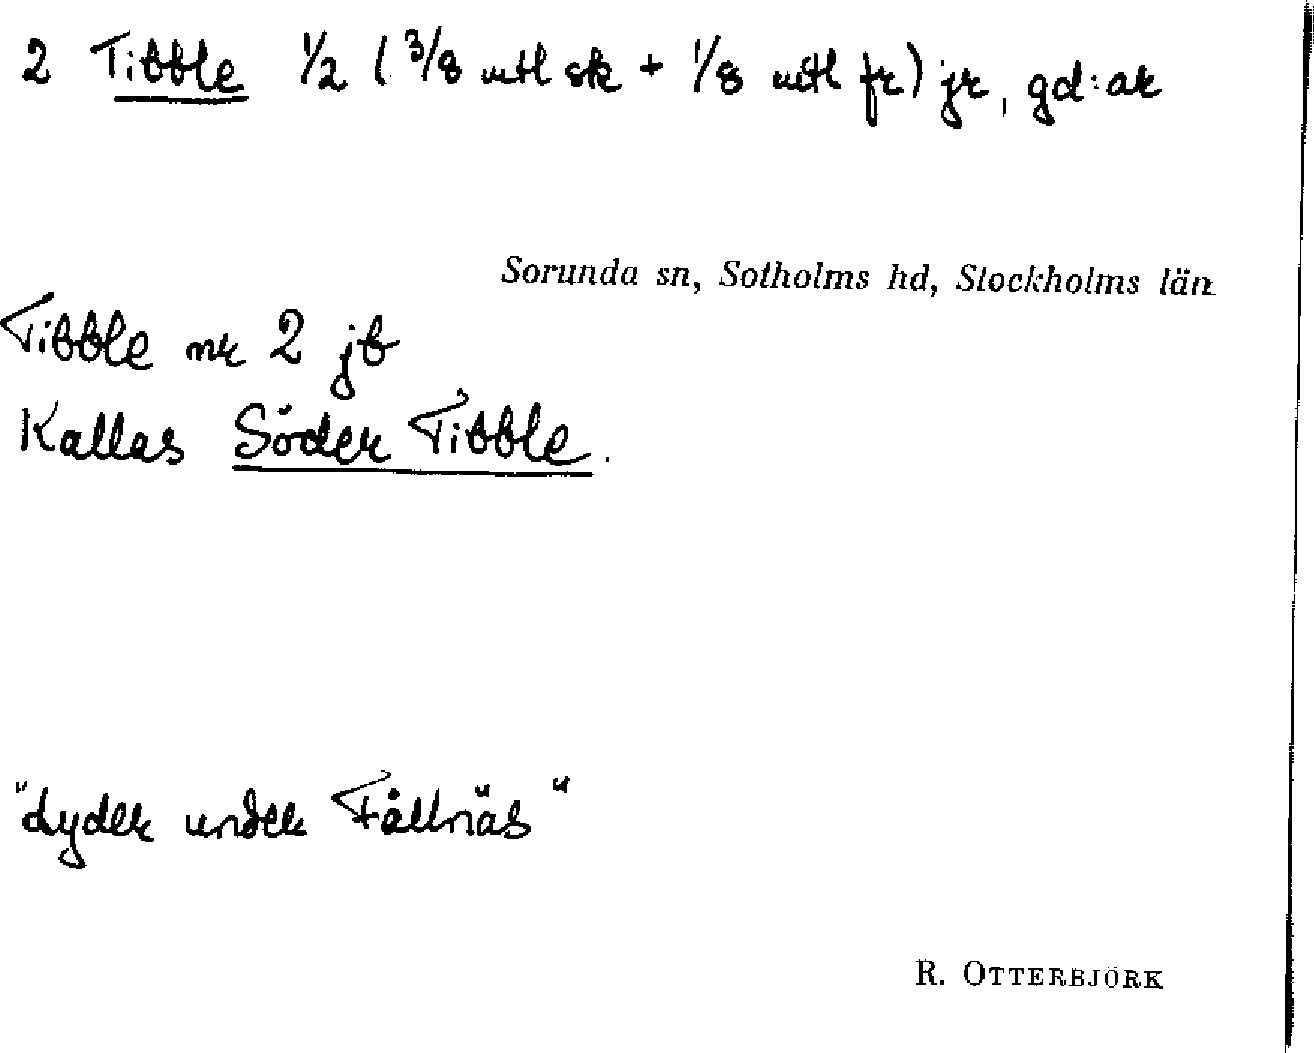 2 Tibble 1/2 (3/8 mtl sk + 1/8 mtl fr) jr, gd:ar
Sorunda sn, Sotholms hd, Stockholms län
Tibble nr 2 jb
Kallas Söder Tibble.
"Lyder under Fållnäs"
R. OTTERBJÖRK